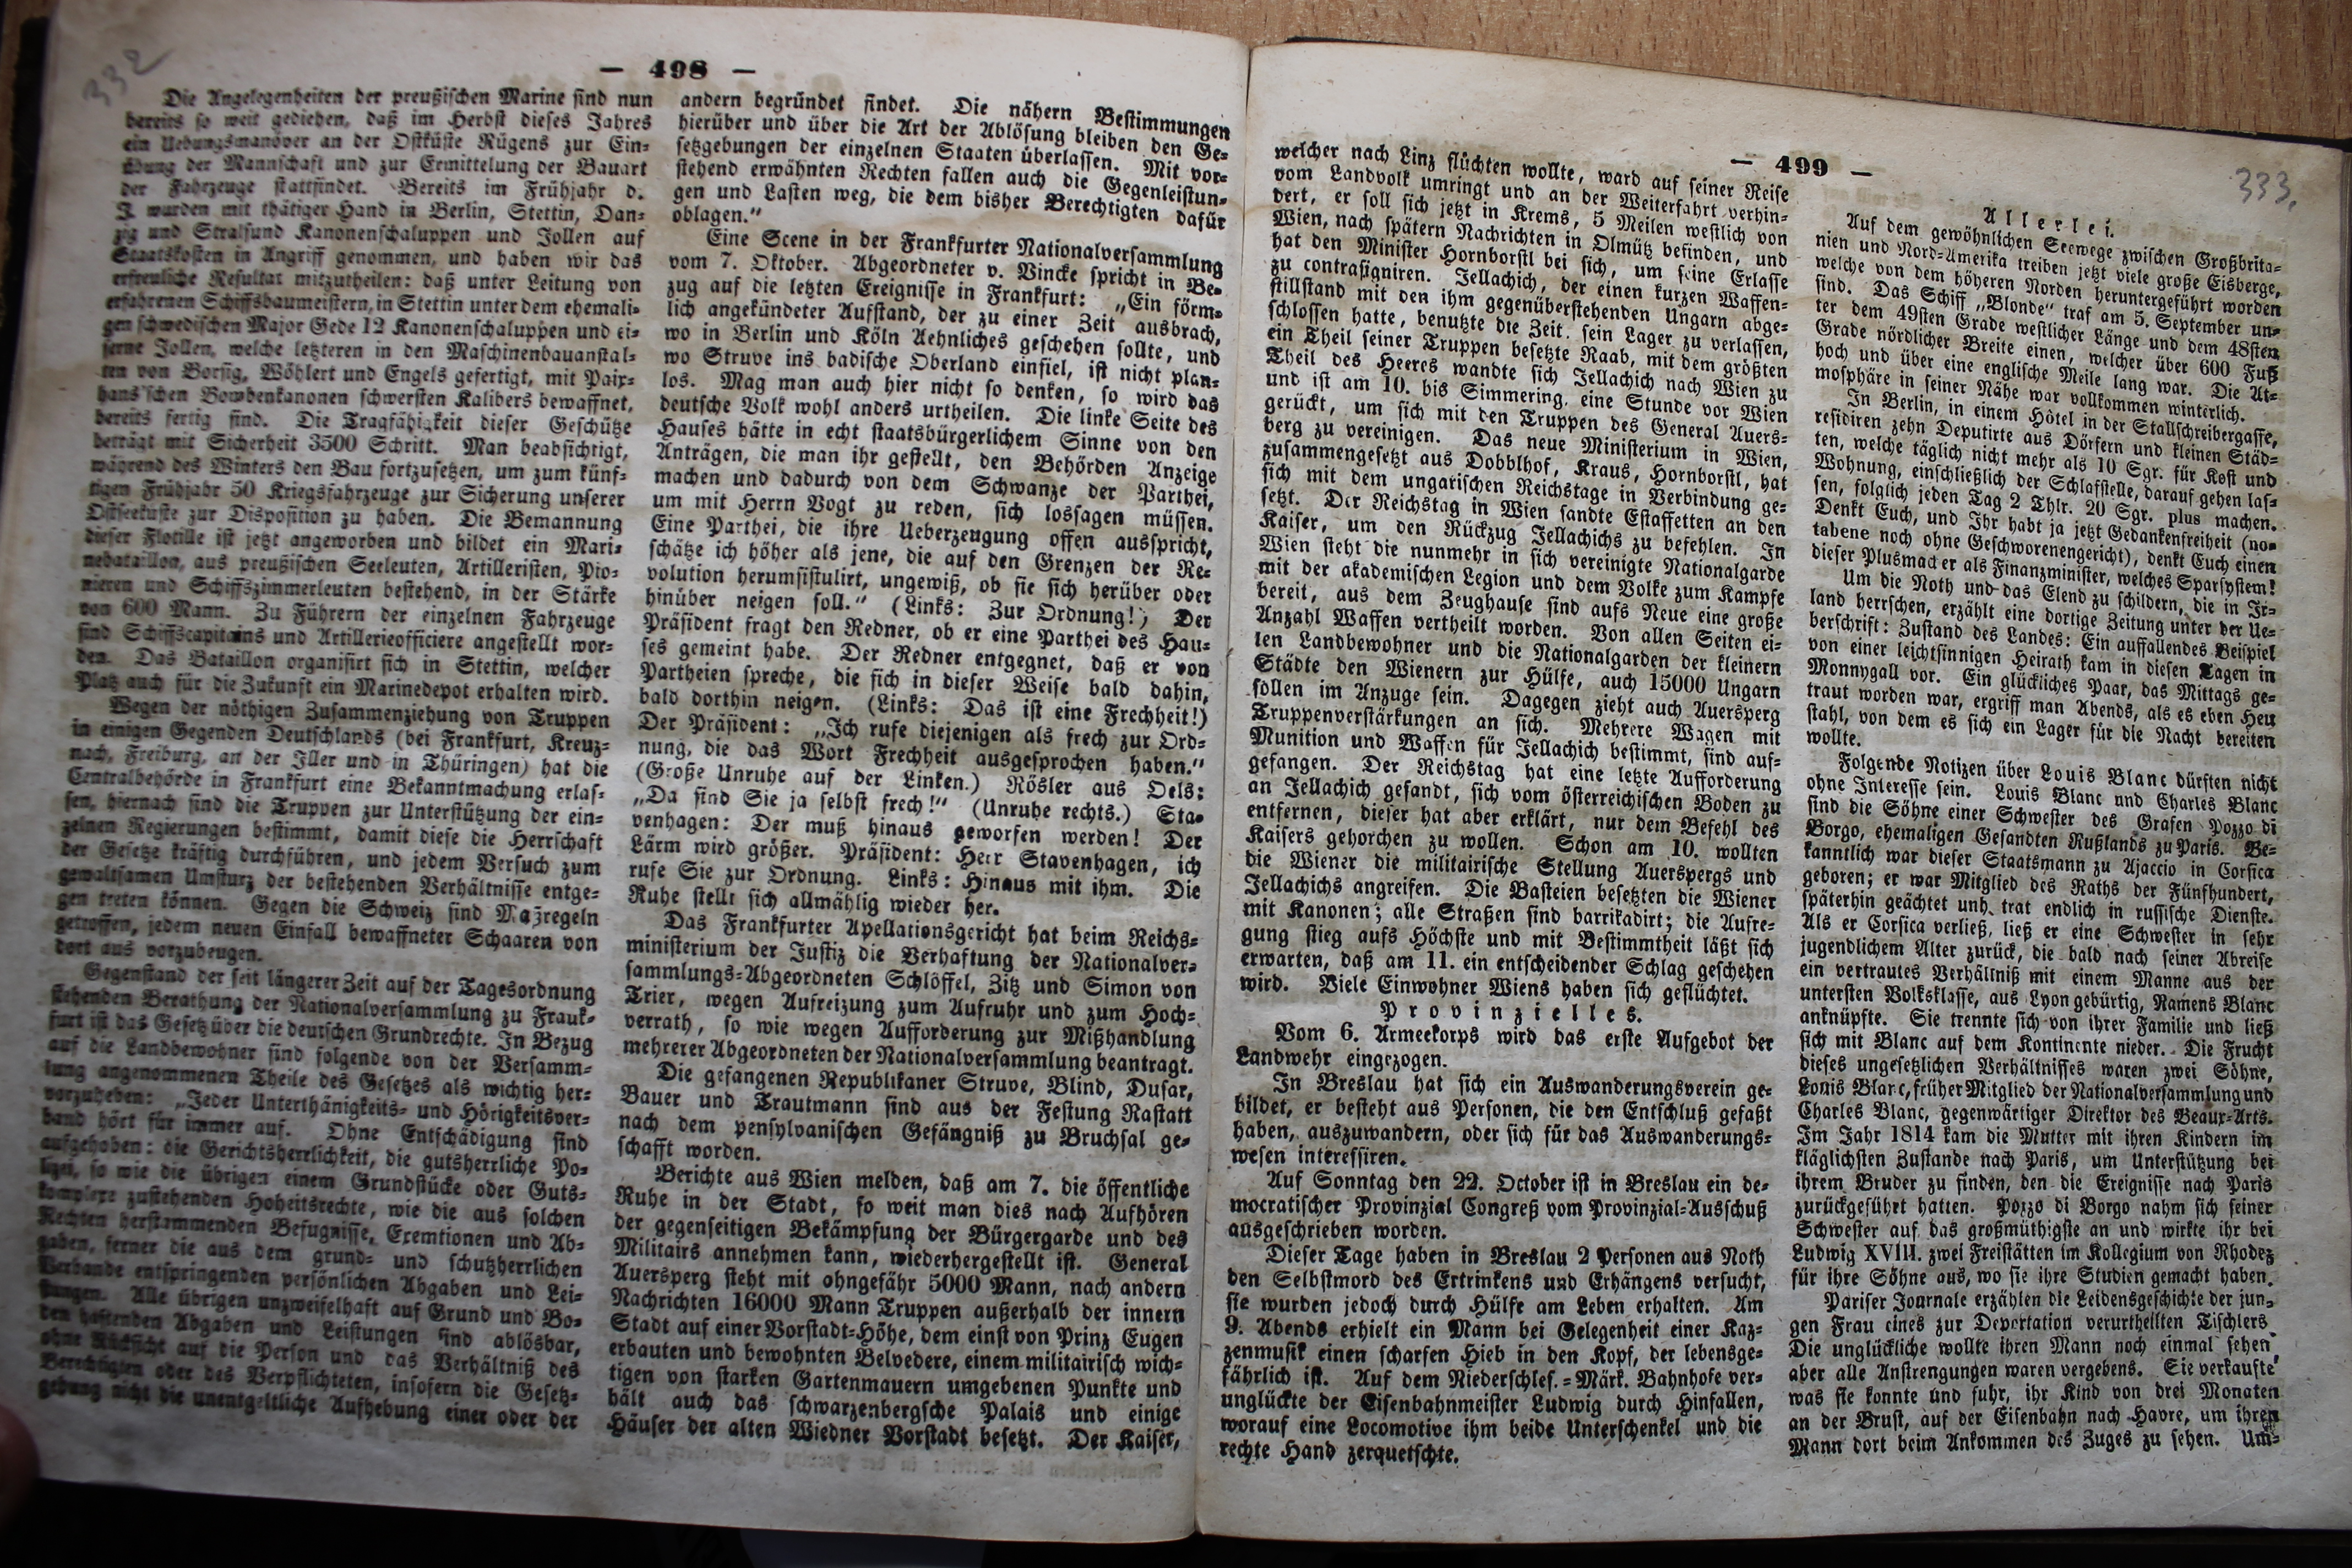 332
— 498 —
Die Angelegenheiten der preußischen Marine sind nun
bereits so weit gediehen, daß im Herbst dieses Jahres
ein Uebungsmanöver an der Ostküste Rügens zur Ein-
übung der Mannschaft und zur Ermittelung der Bauart
der Fahrzeuge stattfindet. Bereits im Frühjahr d.
J. wurden mit thätiger Hand in Berlin, Stettin, Dan-
zig und Stralsund Kanonenschaluppen und Jollen auf
Staatskosten in Angriff genommen, und haben wir das
erfreuliche Resultat mitzutheilen: daß unter Leitung von
erfahrenen Schiffsbaumeistern, in Stettin unter dem ehemali-
gen schwedischen Major Gede 12 Kanonenschaluppen und ei-
serne Jollen, welche letzteren in den Maschinenbauanstal-
ten von Borsig, Wöhlert und Engels gefertigt, mit Paix-
hans'schen Bombenkanonen schwersten Kalibers bewaffnet,
bereits fertig sind. Die Tragfähigkeit dieser Geschütze
beträgt mit Sicherheit 3500 Schritt. Man beabsichtigt,
während des Winters den Bau fortzusetzen, um zum künf-
tigen Frühjahr 50 Kriegsfahrzeuge zur Sicherung unserer
Ostseeküste zur Disposition zu haben. Die Bemannung
dieser Flotille ist jetzt angeworben und bildet ein Mari-
nebataillon, aus preußischen Seeleuten, Artilleristen, Pio-
nieren und Schiffszimmerleuten bestehend, in der Stärke
von 600 Mann. Zu Führern der einzelnen Fahrzeuge
sind Schiffscapitains und Artillerieofficiere angestellt wor-
den. Das Bataillon organisirt sich in Stettin, welcher
Platz auch für die Zukunft ein Marinedepot erhalten wird.
Wegen der nöthigen Zusammenziehung von Truppen
in einigen Gegenden Deutschlands (bei Frankfurt, Kreuz-
nach, Freiburg, an der Iller und in Thüringen) hat die
Centralbehörde in Frankfurt eine Bekanntmachung erlas-
sen, hiernach sind die Truppen zur Unterstützung der ein-
zelnen Regierungen bestimmt, damit diese die Herrschaft
der Gesetze kräftig durchführen, und jedem Versuch zum
gewaltsamen Umsturz der bestehenden Verhältnisse entge-
gen treten können. Gegen die Schweiz sind Maßregeln
getroffen, jedem neuen Einfall bewaffneter Schaaren von
dort aus vorzubeugen.
Gegenstand der seit längerer Zeit auf der Tagesordnung
stehenden Berathung der Nationalversammlung zu Frank-
furt ist das Gesetz über die deutschen Grundrechte. In Bezug
auf die Landbewohner sind folgende von der Versamm-
lung angenommenen Theile des Gesetzes als wichtig her-
vorzuheben: „Jeder Unterthänigkeits- und Hörigkeitsver-
band hört für immer auf. Ohne Entschädigung sind
aufgehoben: die Gerichtsherrlichkeit, die gutsherrliche Po-
lizei, so wie die übrigen einem Grundstücke oder Guts-
komplexe zustehenden Hoheitsrechte, wie die aus solchen
Rechten herstammenden Befugnisse, Exemtionen und Ab-
gaben, ferner die aus dem grund- und schutzherrlichen
Verbande entspringenden persönlichen Abgaben und Lei-
stungen. Alle übrigen unzweifelhaft auf Grund und Bo-
den haftenden Abgaben und Leistungen sind ablösbar,
ohne Rücksicht auf die Person und das Verhältniß des
Berechtigten oder des Verpflichteten, insofern die Gesetz-
gebung nicht die unentgeltliche Aufhebung einer oder der
andern begründet findet. Die nähern Bestimmungen
hierüber und über die Art der Ablösung bleiben den Ge-
setzgebungen der einzelnen Staaten überlassen. Mit vor-
stehend erwähnten Rechten fallen auch die Gegenleistun-
gen und Lasten weg, die dem bisher Berechtigten dafür
oblagen."
Eine Scene in der Frankfurter Nationalversammlung
vom 7. Oktober. Abgeordneter v. Vincke spricht in Be-
zug auf die letzten Ereignisse in Frankfurt: „Ein förm-
lich angekündeter Aufstand, der zu einer Zeit ausbrach,
wo in Berlin und Köln Aehnliches geschehen sollte, und
wo Struve ins badische Oberland einfiel, ist nicht plan-
los. Mag man auch hier nicht so denken, so wird das
deutsche Volk wohl anders urtheilen. Die linke Seite des
Hauses hätte in echt staatsbürgerlichem Sinne von den
Anträgen, die man ihr gestellt, den Behörden Anzeige
machen und dadurch von dem Schwanze der Parthei,
um mit Herrn Vogt zu reden, sich lossagen müssen.
Eine Parthei, die ihre Ueberzeugung offen ausspricht,
schätze ich höher als jene, die auf den Grenzen der Re-
volution herumfistulirt, ungewiß, ob sie sich herüber oder
hinüber neigen soll." (Links: Zur Ordnung!) Der
Präsident fragt den Redner, ob er eine Parthei des Hau-
ses gemeint habe. Der Redner entgegnet, daß er von
Partheien spreche, die sich in dieser Weise bald dahin,
bald dorthin neigen. (Links: Das ist eine Frechheit!)
Der Präsident: „Ich rufe diejenigen als frech zur Ord-
nung, die das Wort Frechheit ausgesprochen haben."
(Große Unruhe auf der Linken.) Rösler aus Oels:
„Da sind Sie ja selbst frech!" (Unruhe rechts.) Sta-
venhagen: Der muß hinaus geworfen werden! Der
Lärm wird größer. Präsident: Herr Stavenhagen, ich
rufe Sie zur Ordnung. Links: Hinaus mit ihm. Die
Ruhe stellt sich allmählig wieder her.
Das Frankfurter Apellationsgericht hat beim Reichs-
ministerium der Justiz die Verhaftung der Nationalver-
sammlungs-Abgeordneten Schlöffel, Zitz und Simon von
Trier, wegen Aufreizung zum Aufruhr und zum Hoch-
verrath, so wie wegen Aufforderung zur Mißhandlung
mehrerer Abgeordneten der Nationalversammlung beantragt.
Die gefangenen Republikaner Struve, Blind, Dusar,
Bauer und Trautmann sind aus der Festung Rastatt
nach dem pensylvanischen Gefängniß zu Bruchsal ge-
schafft worden.
Berichte aus Wien melden, daß am 7. die öffentliche
Ruhe in der Stadt, so weit man dies nach Aufhören
der gegenseitigen Bekämpfung der Bürgergarde und des
Militairs annehmen kann, wiederhergestellt ist. General
Auersperg steht mit ohngefähr 5000 Mann, nach andern
Nachrichten 16000 Mann Truppen außerhalb der innern
Stadt auf einer Vorstadt-Höhe, dem einst von Prinz Eugen
erbauten und bewohnten Belvedere, einem militairisch wich-
tigen von starken Gartenmauern umgebenen Punkte und
hält auch das schwarzenbergsche Palais und einige
Häuser der alten Wiedner Vorstadt besetzt. Der Kaiser,
— 499 —
333.
welcher nach Linz flüchten wollte, ward auf seiner Reise
vom Landvolk umringt und an der Weiterfahrt verhin-
dert, er soll sich jetzt in Krems, 5 Meilen westlich von
Wien, nach spätern Nachrichten in Olmütz befinden, und
hat den Minister Hornborstl bei sich, um seine Erlasse
zu contrasigniren. Jellachich, der einen kurzen Waffen-
stillstand mit den ihm gegenüberstehenden Ungarn abge-
schlossen hatte, benutzte die Zeit, sein Lager zu verlassen,
ein Theil seiner Truppen besetzte Raab, mit dem größten
Theil des Heeres wandte sich Jellachich nach Wien zu
und ist am 10. bis Simmering, eine Stunde vor Wien
gerückt, um sich mit den Truppen des General Auers-
berg zu vereinigen. Das neue Ministerium in Wien,
zusammengesetzt aus Dobblhof, Kraus, Hornborstl, hat
sich mit dem ungarischen Reichstage in Verbindung ge-
setzt. Der Reichstag in Wien sandte Estaffetten an den
Kaiser, um den Rückzug Jellachichs zu befehlen. In
Wien steht die nunmehr in sich vereinigte Nationalgarde
mit der akademischen Legion und dem Volke zum Kampfe
bereit, aus dem Zeughause sind aufs Neue eine große
Anzahl Waffen vertheilt worden. Von allen Seiten ei-
len Landbewohner und die Nationalgarden der kleinern
Städte den Wienern zur Hülfe, auch 15000 Ungarn
sollen im Anzuge sein. Dagegen zieht auch Auersperg
Truppenverstärkungen an sich. Mehrere Wagen mit
Munition und Waffen für Jellachich bestimmt, sind auf-
gefangen. Der Reichstag hat eine letzte Aufforderung
an Jellachich gesandt, sich vom österreichischen Boden zu
entfernen, dieser hat aber erklärt, nur dem Befehl des
Kaisers gehorchen zu wollen. Schon am 10. wollten
die Wiener die militairische Stellung Auerspergs und
Jellachichs angreifen. Die Basteien besetzten die Wiener
mit Kanonen; alle Straßen sind barrikadirt; die Aufre-
gung stieg aufs Höchste und mit Bestimmtheit läßt sich
erwarten, daß am 11. ein entscheidender Schlag geschehen
wird. Viele Einwohner Wiens haben sich geflüchtet.
Provinzielles.
Vom 6. Armeekorps wird das erste Aufgebot der
Landwehr eingezogen.
In Breslau hat sich ein Auswanderungsverein ge-
bildet, er besteht aus Personen, die den Entschluß gefaßt
haben, auszuwandern, oder sich für das Auswanderungs-
wesen interessiren.
Auf Sonntag den 22. October ist in Breslau ein de-
mocratischer Provinzial Congreß vom Provinzial-Ausschuß
ausgeschrieben worden.
Dieser Tage haben in Breslau 2 Personen aus Noth
den Selbstmord des Ertrinkens und Erhängens versucht,
sie wurden jedoch durch Hülfe am Leben erhalten. Am
9. Abends erhielt ein Mann bei Gelegenheit einer Kaz-
zenmusik einen scharfen Hieb in den Kopf, der lebensge-
fährlich ist. Auf dem Niederschles.-Märk. Bahnhofe ver-
unglückte der Eisenbahnmeister Ludwig durch Hinfallen,
worauf eine Locomotive ihm beide Unterschenkel und die
rechte Hand zerquetschte.
Allerlei.
Auf dem gewöhnlichen Seewege zwischen Großbrita-
nien und Nord-Amerika treiben jetzt viele große Eisberge,
welche von dem höheren Norden heruntergeführt worden
sind. Das Schiff „Blonde" traf am 5. September un-
ter dem 49sten Grade westlicher Länge und dem 48sten
Grade nördlicher Breite einen, welcher über 600 Fuß
hoch und über eine englische Meile lang war. Die At-
mosphäre in seiner Nähe war vollkommen winterlich.
In Berlin, in einem Hôtel in der Stallschreibergasse,
residiren zehn Deputirte aus Dörfern und kleinen Städ-
ten, welche täglich nicht mehr als 10 Sgr. für Kost und
Wohnung, einschließlich der Schlafstelle, darauf gehen las-
sen, folglich jeden Tag 2 Thlr. 20 Sgr. plus machen.
Denkt Euch, und Ihr habt ja jetzt Gedankenfreiheit (no-
tabene noch ohne Geschworenengericht), denkt Euch einen
dieser Plusmacher als Finanzminister, welches Sparsystem!
Um die Noth und das Elend zu schildern, die in Ir-
land herrschen, erzählt eine dortige Zeitung unter der Ue-
berschrift: Zustand des Landes: Ein auffallendes Beispiel
von einer leichtsinnigen Heirath kam in diesen Tagen in
Monnygall vor. Ein glückliches Paar, das Mittags ge-
traut worden war, ergriff man Abends, als es eben Heu
stahl, von dem es sich ein Lager für die Nacht bereiten
wollte.
Folgende Notizen über Louis Blanc dürften nicht
ohne Interesse sein. Louis Blanc und Charles Blanc
sind die Söhne einer Schwester des Grafen Pozzo di
Borgo, ehemaligen Gesandten Rußlands zu Paris. Be-
kanntlich war dieser Staatsmann zu Ajaccio in Corsica
geboren; er war Mitglied des Raths der Fünfhundert,
späterhin geächtet und trat endlich in russische Dienste.
Als er Corsica verließ, ließ er eine Schwester in sehr
jugendlichem Alter zurück, die bald nach seiner Abreise
ein vertrautes Verhältniß mit einem Manne aus der
untersten Volksklasse, aus Lyon gebürtig, Namens Blanc
anknüpfte. Sie trennte sich von ihrer Familie und ließ
sich mit Blanc auf dem Kontinente nieder. Die Frucht
dieses ungesetzlichen Verhältnisses waren zwei Söhne,
Louis Blanc, früher Mitglied der Nationalversammlung und
Charles Blanc, gegenwärtiger Direktor des Beaux-Arts.
Im Jahr 1814 kam die Mutter mit ihren Kindern im
kläglichsten Zustande nach Paris, um Unterstützung bei
ihrem Bruder zu finden, den die Ereignisse nach Paris
zurückgeführt hatten. Pozzo di Borgo nahm sich seiner
Schwester auf das großmüthigste an und wirkte ihr bei
Ludwig XVIII. zwei Freistätten im Kollegium von Rhodez
für ihre Söhne aus, wo sie ihre Studien gemacht haben.
Pariser Journale erzählen die Leidensgeschichte der jun-
gen Frau eines zur Deportation verurtheilten Tischlers
Die unglückliche wollte ihren Mann noch einmal sehen,
aber alle Anstrengungen waren vergebens. Sie verkaufte
was sie konnte und fuhr, ihr Kind von drei Monaten
an der Brust, auf der Eisenbahn nach Havre, um ihren
Mann dort beim Ankommen des Zuges zu sehen. Um-